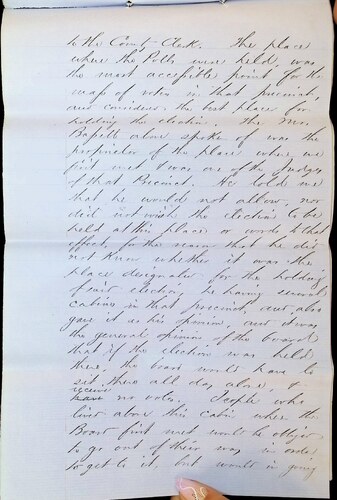 to the Court Clerk. The place
where the Polls were held, was
the most accessible point for the
mass of votes in that precinct,
and considered the best place for
holding the election. The Mr.
Bassett alone spoke of was the
proprietor of the place where we
first met & was one of the judges
of that Precinct. He told me
that he would not allow, nor
did not wish the election to be
held at this place or words to that
effect, for the reason that he did
not know whether it was the
place designated for the holding
of said election, he having several
cabins in that precinct, and also
gave it as his opinion, and it was
the general opinion of the board
that if the election was held
there, the board would have to
sit there all day alone, &
receive no votes. People who
live above this cabin where the
Board first met would be obliged
to go out of their way in order
to get to it, but would in going